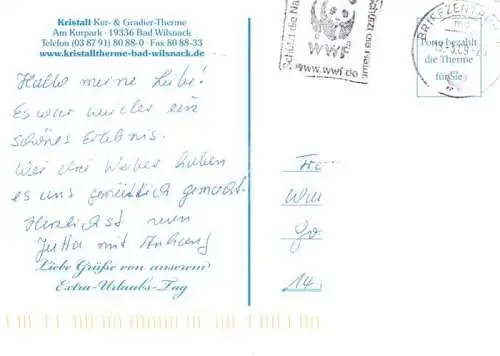 Kristall Kur- & Gradier-Therme
Am Kurpark · 19336 Bad Wilsnack
Telefon (03 87 91) 80 88-0 · Fax 80 88-33
www.kristalltherme-bad-wilsnack.de
Hallo meine Liebe!
Es war wieder ein
schönes Erlebnis.
Wir drei Weiber haben
es uns gemütlich gemacht.
Herzlichst
Jutta mit Anhang
Liebe Grüße von unserem
Extra-Urlaubs-Tag
Schützt die Natur
WWF
www.wwf.de
BRIEFZENTRUM
Porto bezahlt
die Therme
für Sie
14